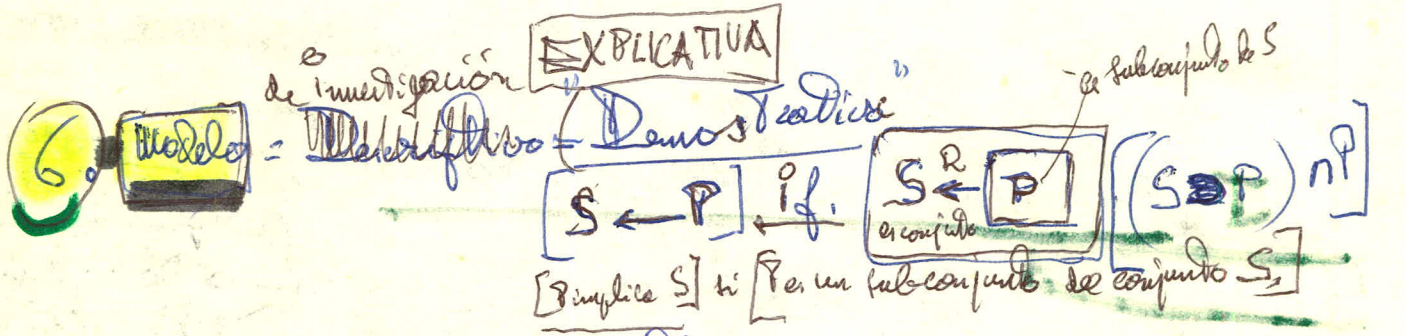 EXPLICATIVA
de investigación
es subconjunto de S
6. Modelo = Descriptivo = "Demostrativa"
[S ← P] if. S ←R P [(S ⊃ P) n P]
es conjunto
[P implica S] si [P es un subconjunto del conjunto S]